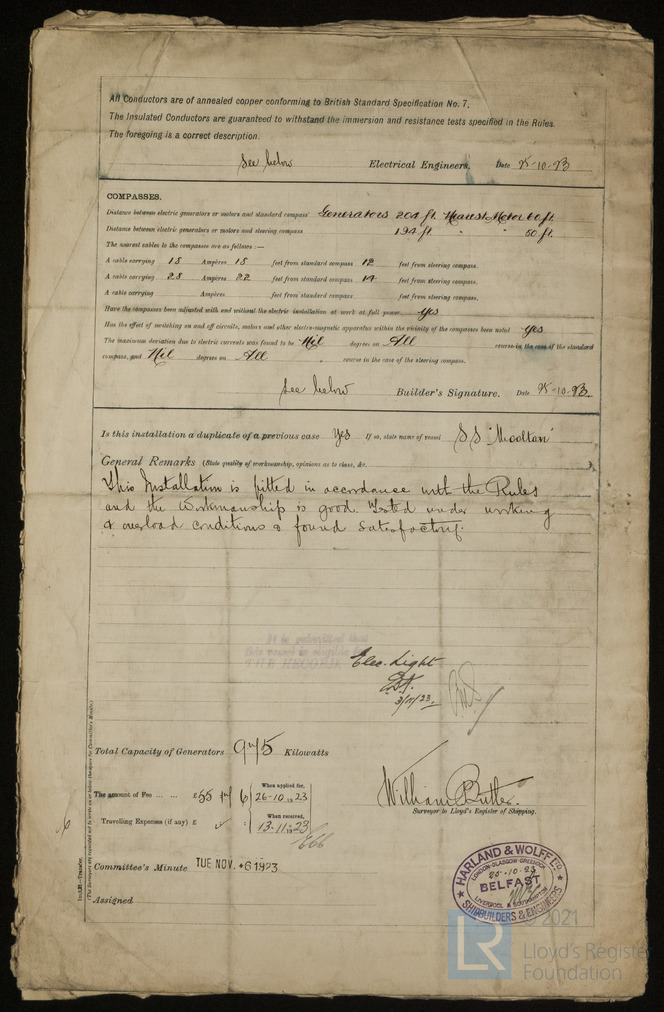 All Conductors are of annealed copper conforming to British Standard Specification No. 7.
The Insulated Conductors are guaranteed to withstand the immersion and resistance tests specified in the Rules.
The foregoing is a correct description.
See below Electrical Engineers. Date 25-10-23
COMPASSES.
Distance between electric generators or motors and standard compass Generators 204 ft. Nearest Motor 60 ft.
Distance between electric generators or motors and steering compass 194 ft. " " 50 ft.
The nearest cables to the compasses are as follows:—
A cable carrying 15 Ampères 15 feet from standard compass 12 feet from steering compass.
A cable carrying 28 Ampères 22 feet from standard compass 14 feet from steering compass.
A cable carrying Ampères feet from standard compass feet from steering compass.
Have the compasses been adjusted with and without the electric installation at work at full power yes
Has the effect of switching on and off circuits, motors and other electro-magnetic apparatus within the vicinity of the compasses been noted yes
The maximum deviation due to electric currents was found to be Nil degrees on All course in the case of the standard
compass, and Nil degrees on All course in the case of the steering compass.
See below Builder's Signature. Date 25-10-23.
Is this installation a duplicate of a previous case Yes If so, state name of vessel SS "Mooltan"
General Remarks (State quality of workmanship, opinions as to class, &c.
This Installation is fitted in accordance with the Rules
and the Workmanship is good. Tested under working
& overload conditions & found satisfactory.
It is submitted that
this vessel is eligible
THE RECORD
Elec. Light
3/11/23.
Total Capacity of Generators 975 Kilowatts
The amount of Fee ... ... £55 6 When applied for, 26-10-1923
William Butler.
Surveyor to Lloyd's Register of Shipping.
Travelling Expenses (if any) £ When received, 13.11.1923
Committee's Minute TUE NOV. 6 1923
Assigned
Transfer.
(The Surveyors are requested not to write on or below the space for Committee's Minute.)
HARLAND & WOLFF LTD
LONDON-GLASGOW-GREENOCK
25-10-23
BELFAST
LIVERPOOL & SOUTHAMPTON
SHIPBUILDERS & ENGINEERS
© 2021
LR
Lloyd's Register
Foundation